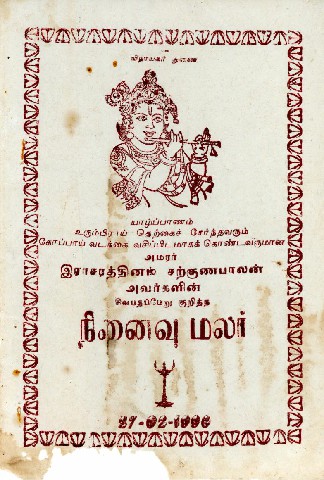 விநாயகர் துணை
யாழ்ப்பாணம்
உரும்பிராய் தெற்கைச் சேர்ந்தவரும்
கோப்பாய் வடக்கை வசிப்பிடமாகக் கொண்டவருமான
அமரர்
இராசரத்தினம் சற்குணபாலன்
அவர்களின்
சிவபதப்பேறு குறித்த
நினைவு மலர்
27-02-1996